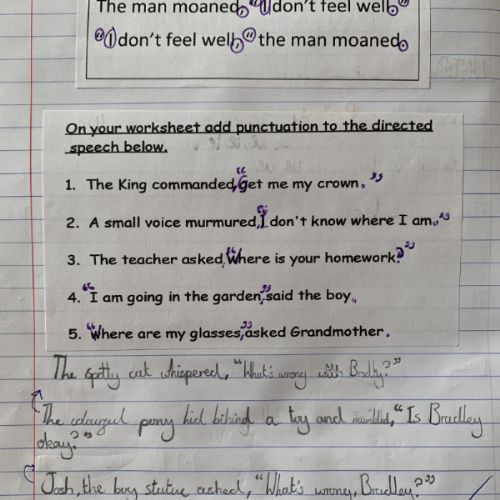 The man moaned, "I don't feel well."
"I don't feel well," the man moaned.
On your worksheet add punctuation to the directed
speech below.
1. The King commanded, "Get me my crown."
2. A small voice murmured, "I don't know where I am."
3. The teacher asked, "Where is your homework?"
4. "I am going in the garden," said the boy.
5. "Where are my glasses," asked Grandmother.
The spotty cat whispered, "What's wrong with Bradley?"
The colourful pony hid bihind a toy and mumbled, "Is Bradley
okay?"
Josh, the boy statue asked, "What's wrong, Bradley?"